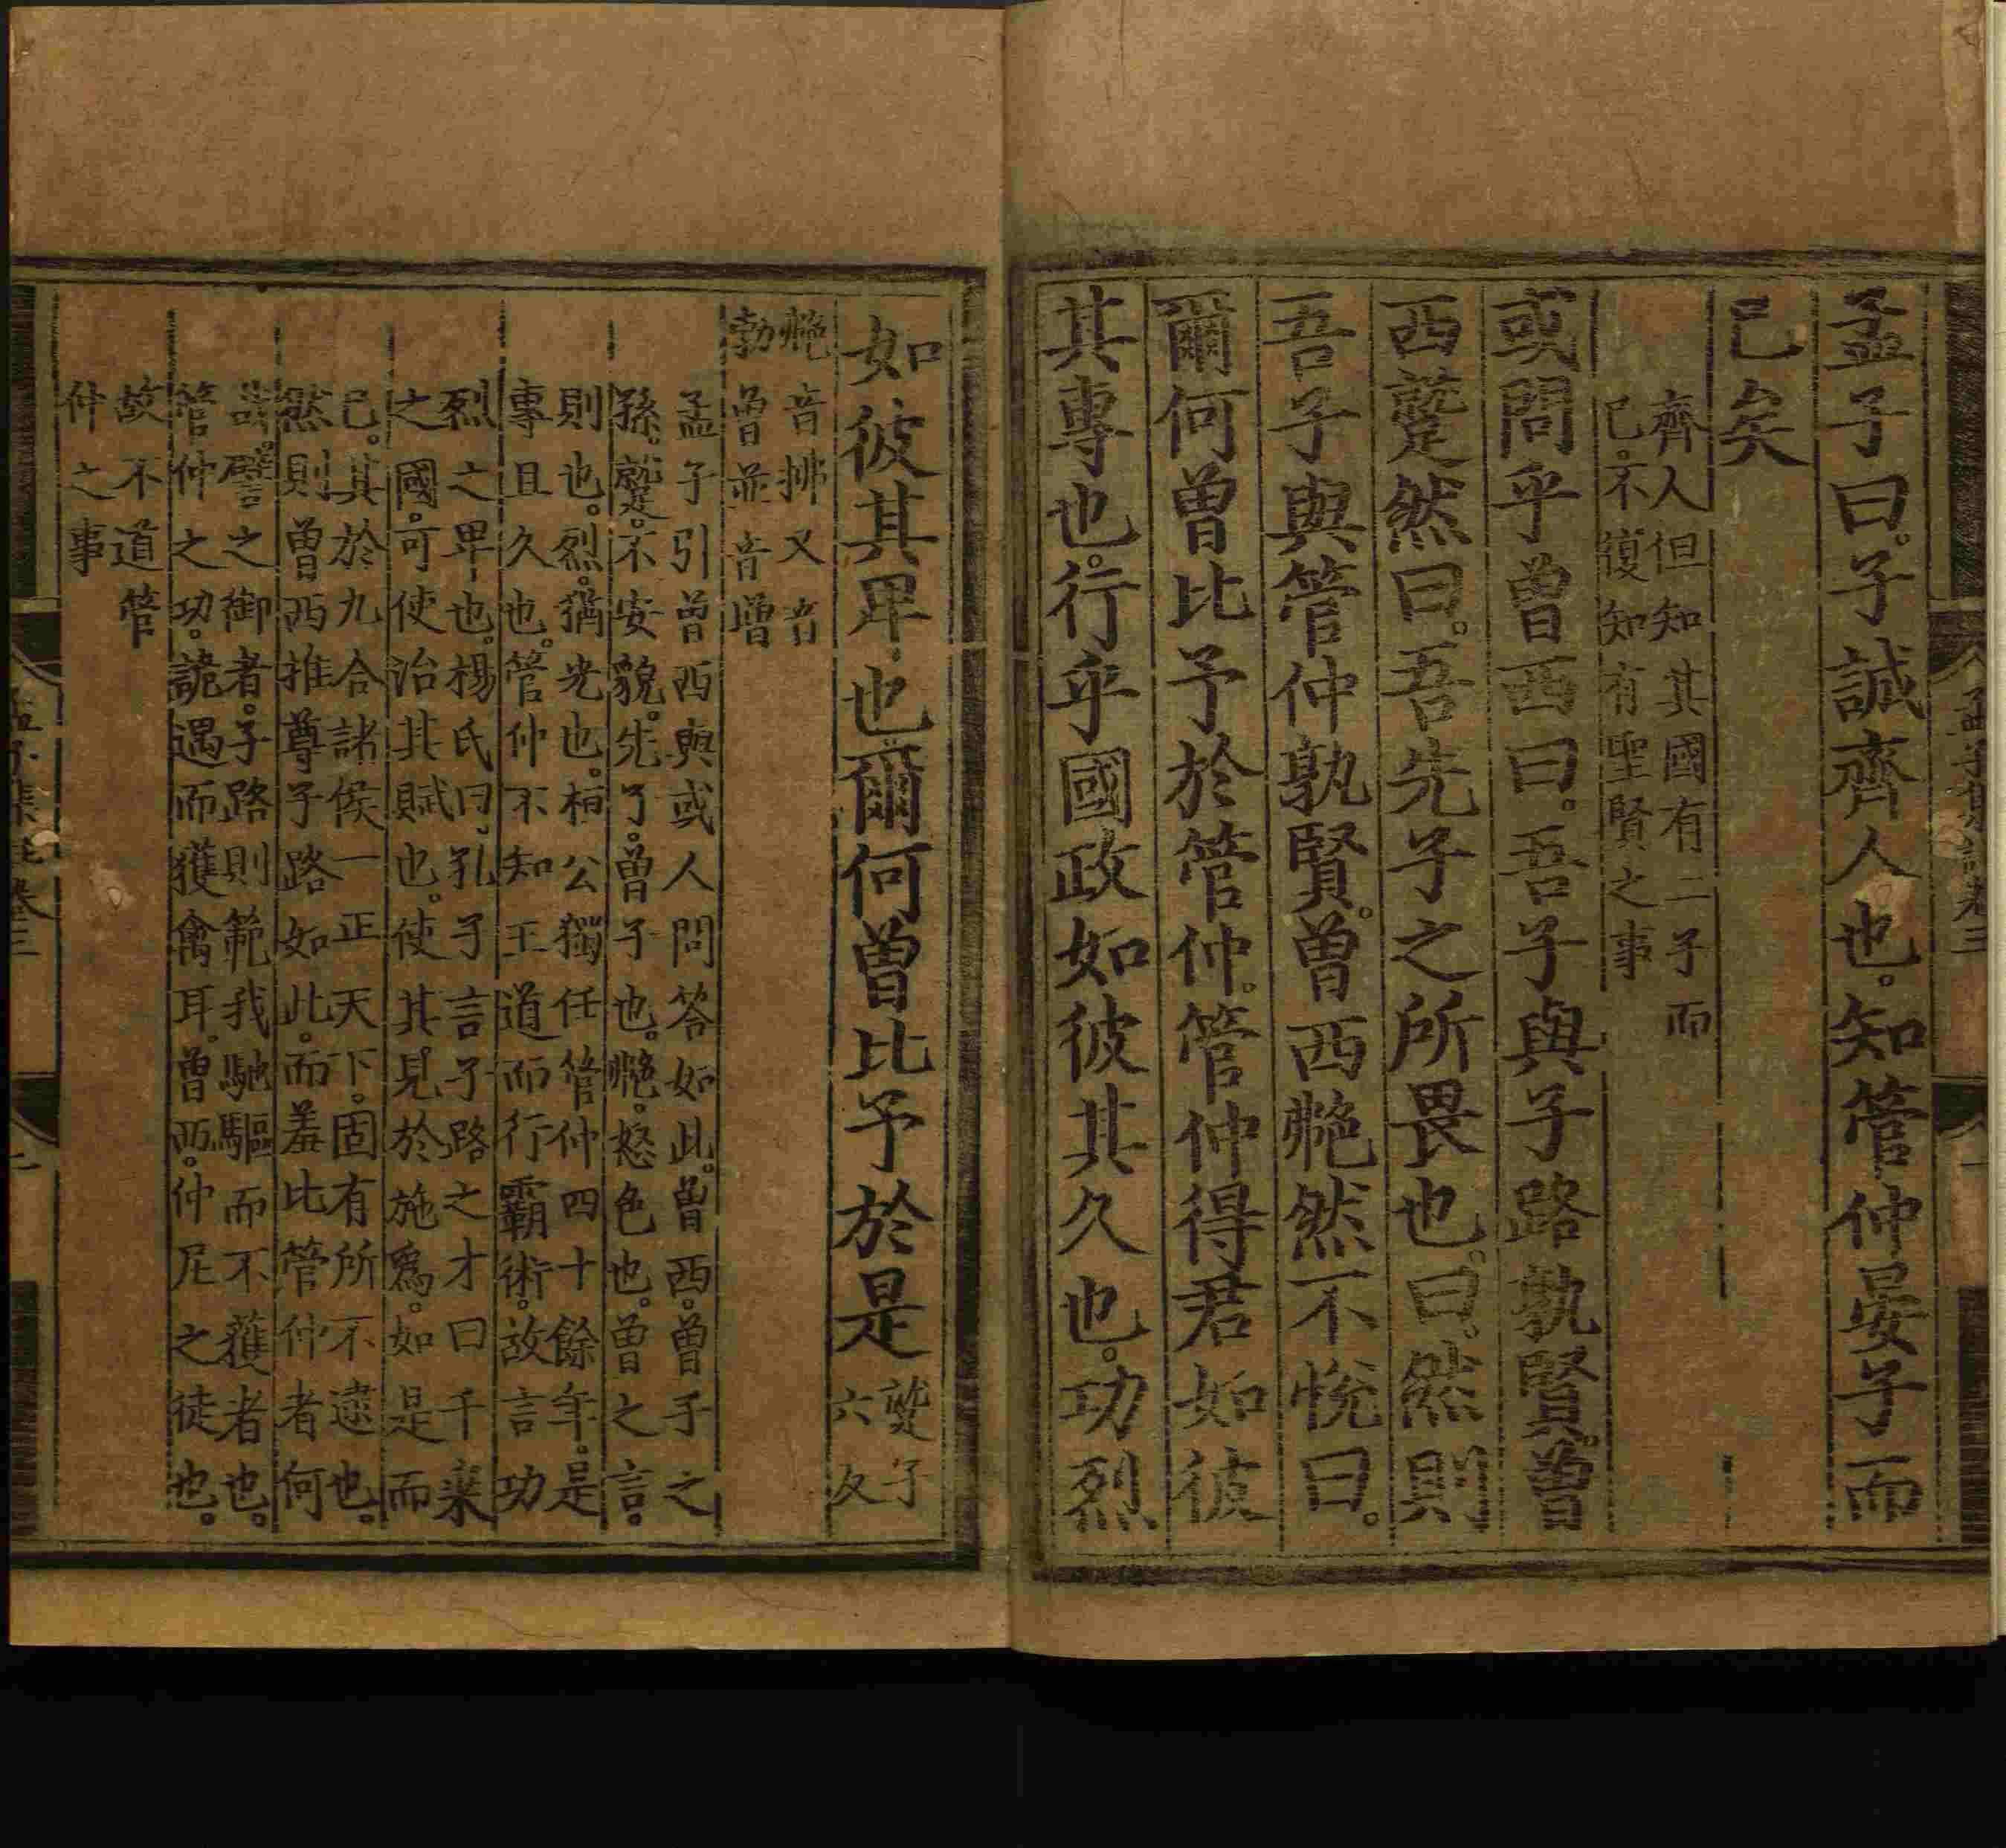 孟子集註卷三
孟子曰。子誠齊人也。知管仲晏子而
已矣
齊人但知其國有二子而
已。不復知有聖賢之事
或問乎曾西曰。吾子與子路孰賢。曾
西蹵然曰。吾先子之所畏也。曰。然則
吾子與管仲孰賢。曾西艴然不悅曰。
爾何曾比予於管仲。管仲得君如彼
其專也。行乎國政如彼其久也。功烈
如彼其卑也爾何曾比予於是
蹵子
六反
艴音拂又音
勃曾並音增
孟子引曾西與或人問答如此。曾西。曾子之
孫。蹵。不安貌。先子。曾子也。艴。怒色也。曾之言。
則也。烈。猶光也。桓公獨任管仲四十餘年。是
專且久也。管仲不知王道而行霸術。故言功
烈之卑也。楊氏曰。孔子言子路之才曰千乘
之國。可使治其賦也。使其見於施爲。如是而
已。其於九合諸侯一正天下。固有所不逮也。
然則曾西推尊子路如此。而羞比管仲者何
哉。譬之御者。子路則範我馳驅而不獲者也。
管仲之功。詭遇而獲禽耳。曾西。仲尼之徒也。
故不道管
仲之事
孟子集註卷三